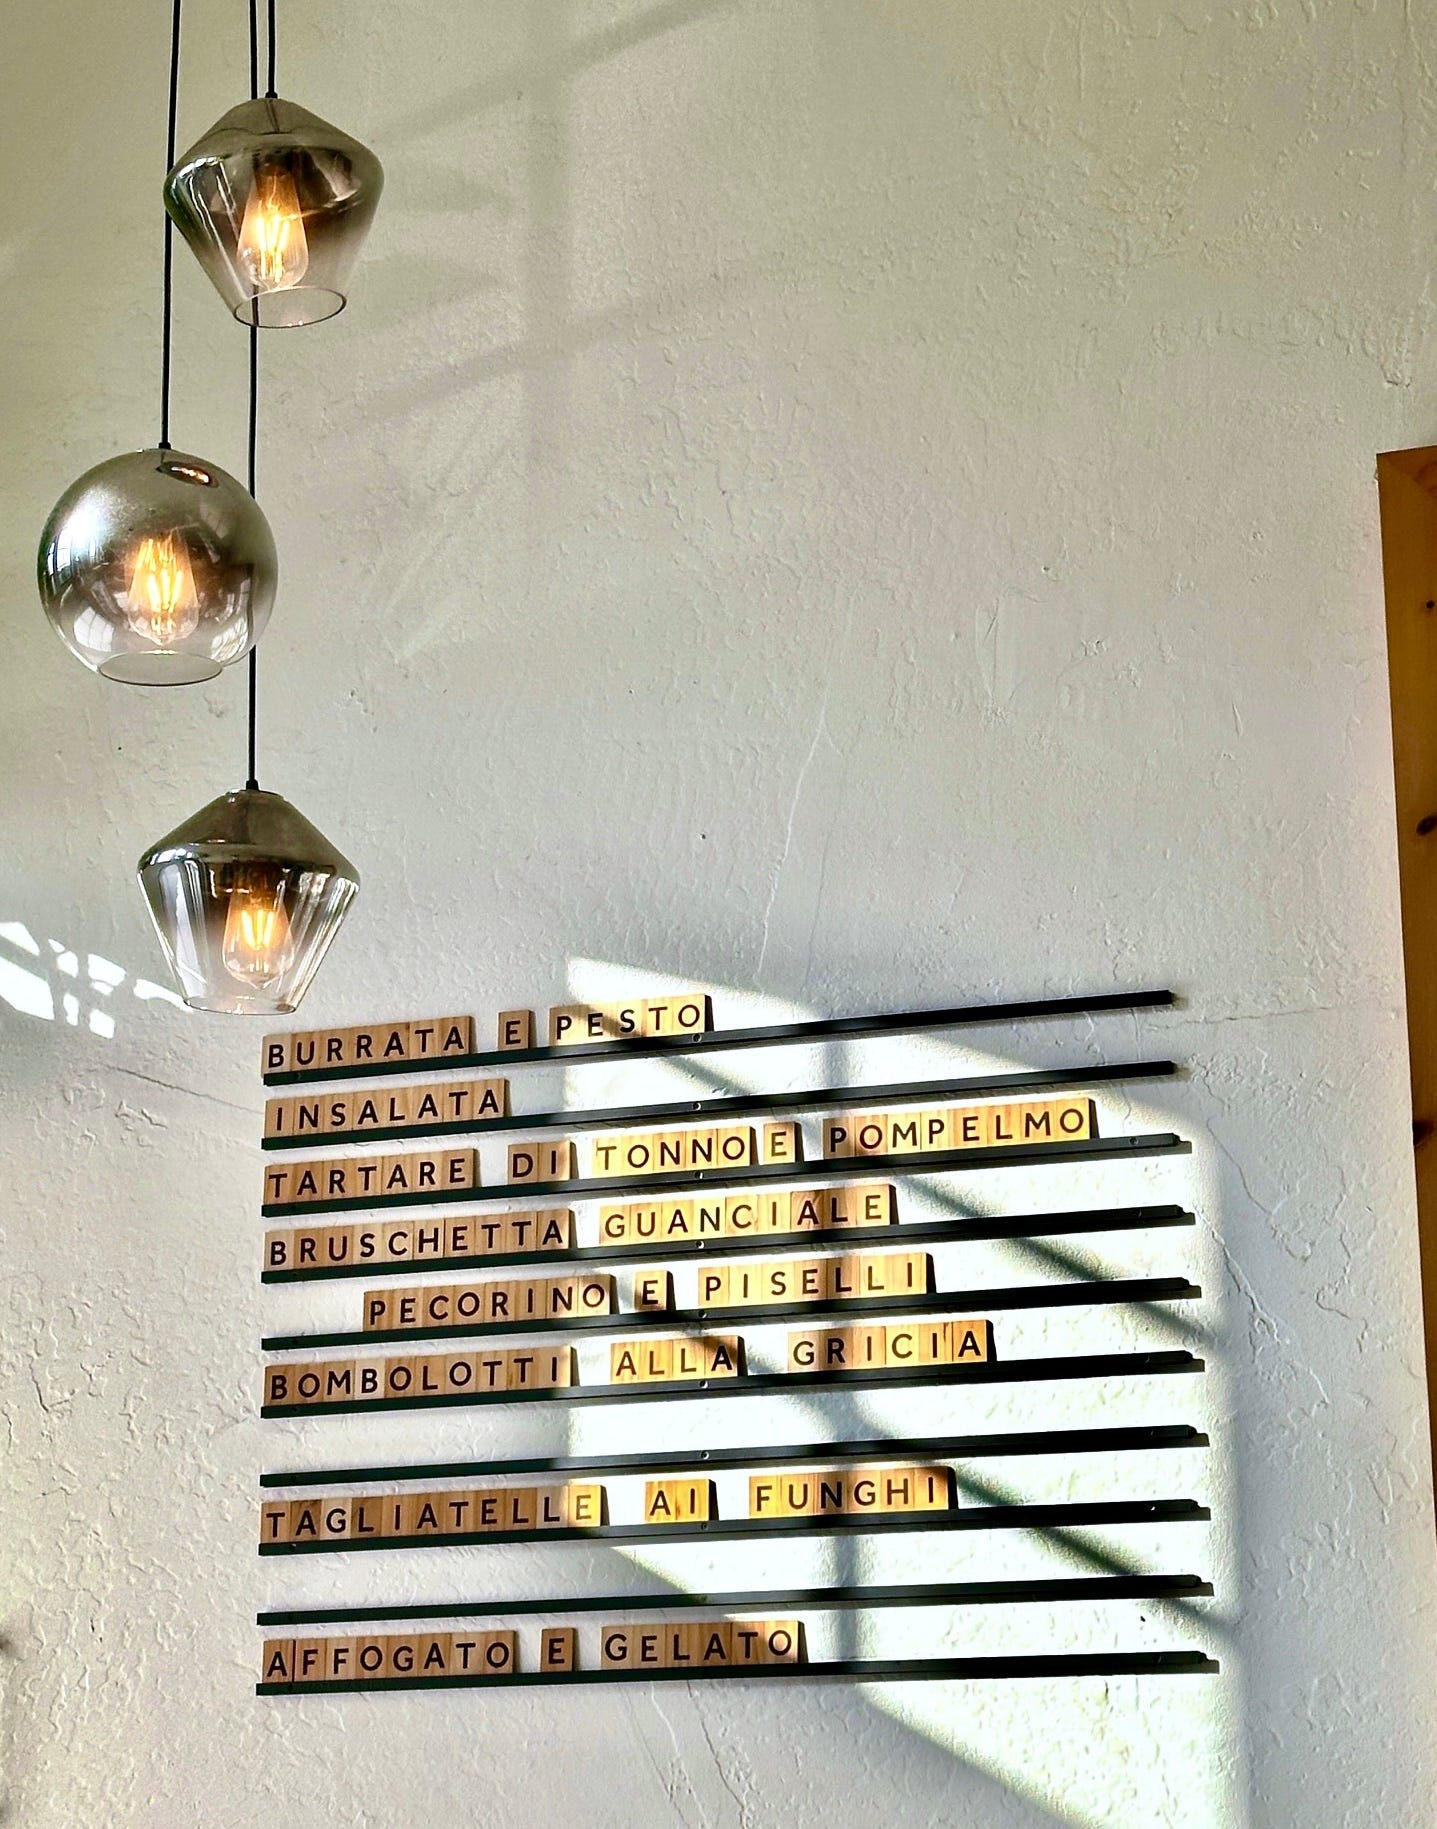 BURRATA E PESTO
INSALATA
TARTARE DI TONNO E POMPELMO
BRUSCHETTA GUANCIALE
PECORINO E PISELLI
BOMBOLOTTI ALLA GRICIA
TAGLIATELLE AI FUNGHI
AFFOGATO E GELATO